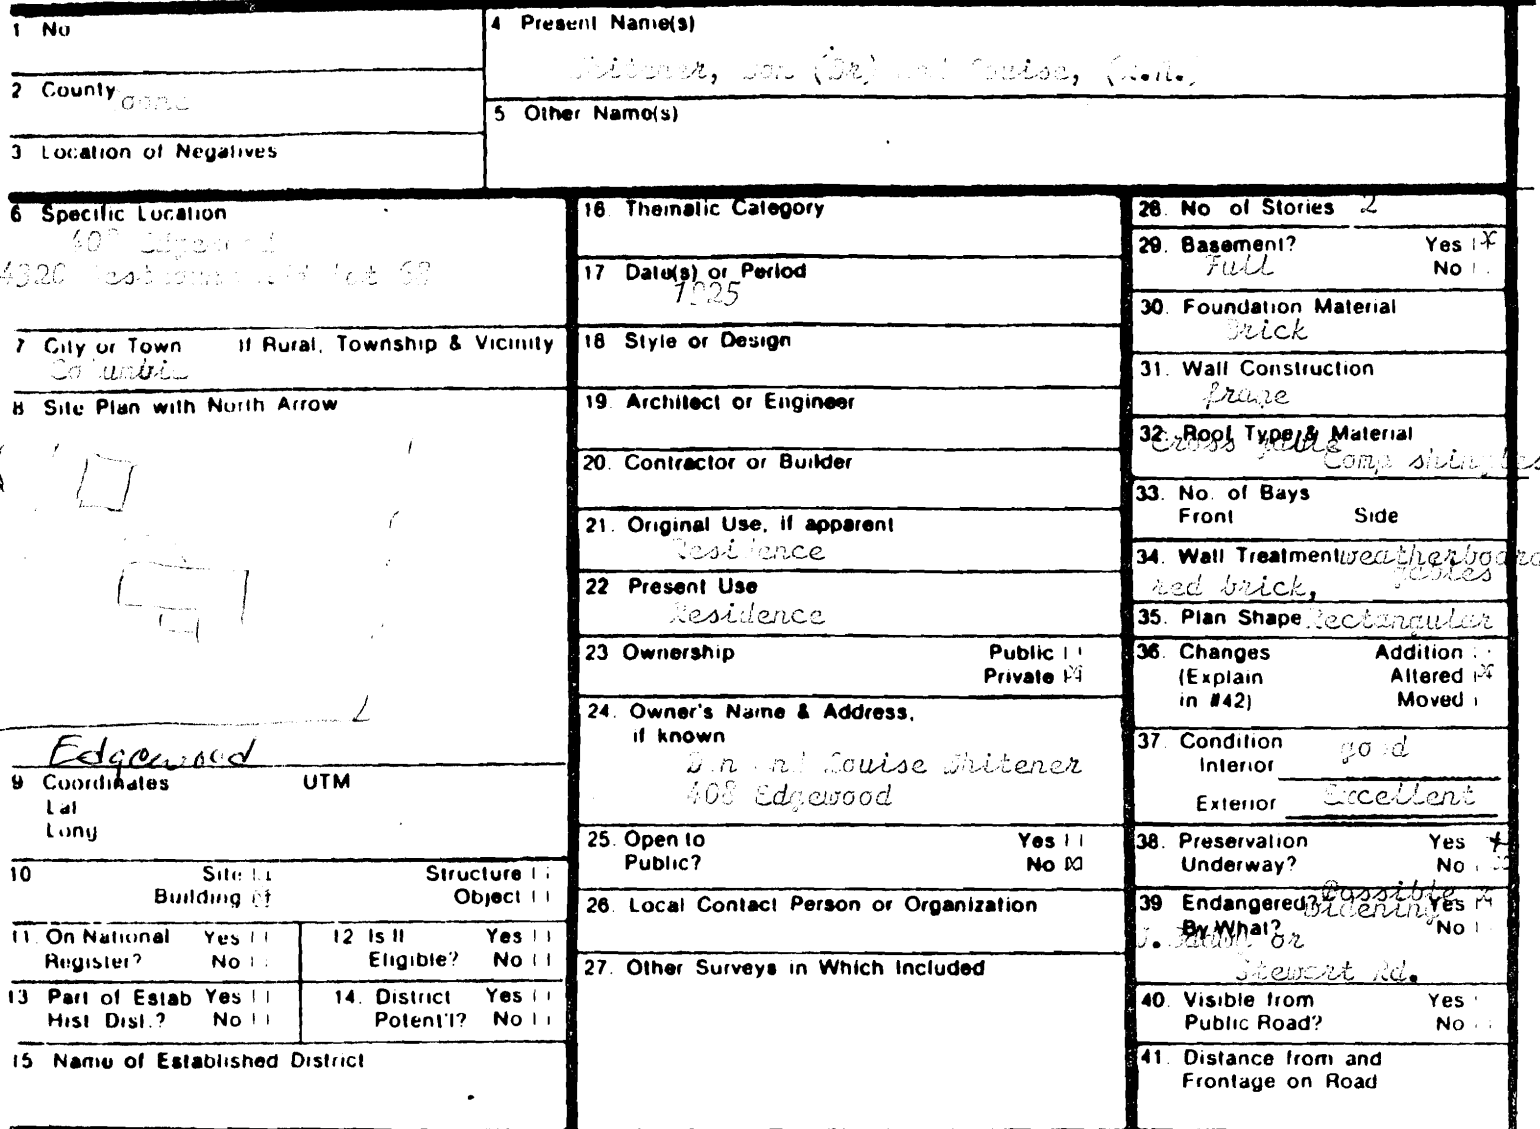 1 No
4 Present Name(s)
Whitener, Dan (Dr) and Louise, (R.N.)
2 County
Boone
5 Other Name(s)
3 Location of Negatives
6 Specific Location
408 Edgewood
4320 lot 68
7 City or Town If Rural, Township & Vicinity
Columbia
8 Site Plan with North Arrow
Edgewood
9 Coordinates UTM
Lat
Long
10 Site Structure
Building Object
11. On National Register? Yes No
12 Is It Eligible? Yes No
13 Part of Estab Hist Dist.? Yes No
14. District Potent'l? Yes No
15 Name of Established District
16. Thematic Category
17 Date(s) or Period
1925
18 Style or Design
19. Architect or Engineer
20. Contractor or Builder
21. Original Use, if apparent
Residence
22 Present Use
Residence
23 Ownership Public
Private
24. Owner's Name & Address,
if known
Dan and Louise Whitener
408 Edgewood
25. Open to Yes
Public? No
26. Local Contact Person or Organization
27. Other Surveys in Which Included
28. No of Stories 2
29. Basement? Yes
Full No
30. Foundation Material
Brick
31. Wall Construction
frame
32. Roof Type & Material
Cross gable
Comp shingles
33. No. of Bays
Front Side
34. Wall Treatment weatherboard
red brick, gables
35. Plan Shape Rectangular
36. Changes Addition
(Explain Altered
in #42) Moved
37. Condition
Interior good
Exterior Excellent
38. Preservation Yes
Underway? No
39 Endangered? Possible Yes
widening
By What? No
or
Stewart Rd.
40. Visible from Yes
Public Road? No
41. Distance from and
Frontage on Road